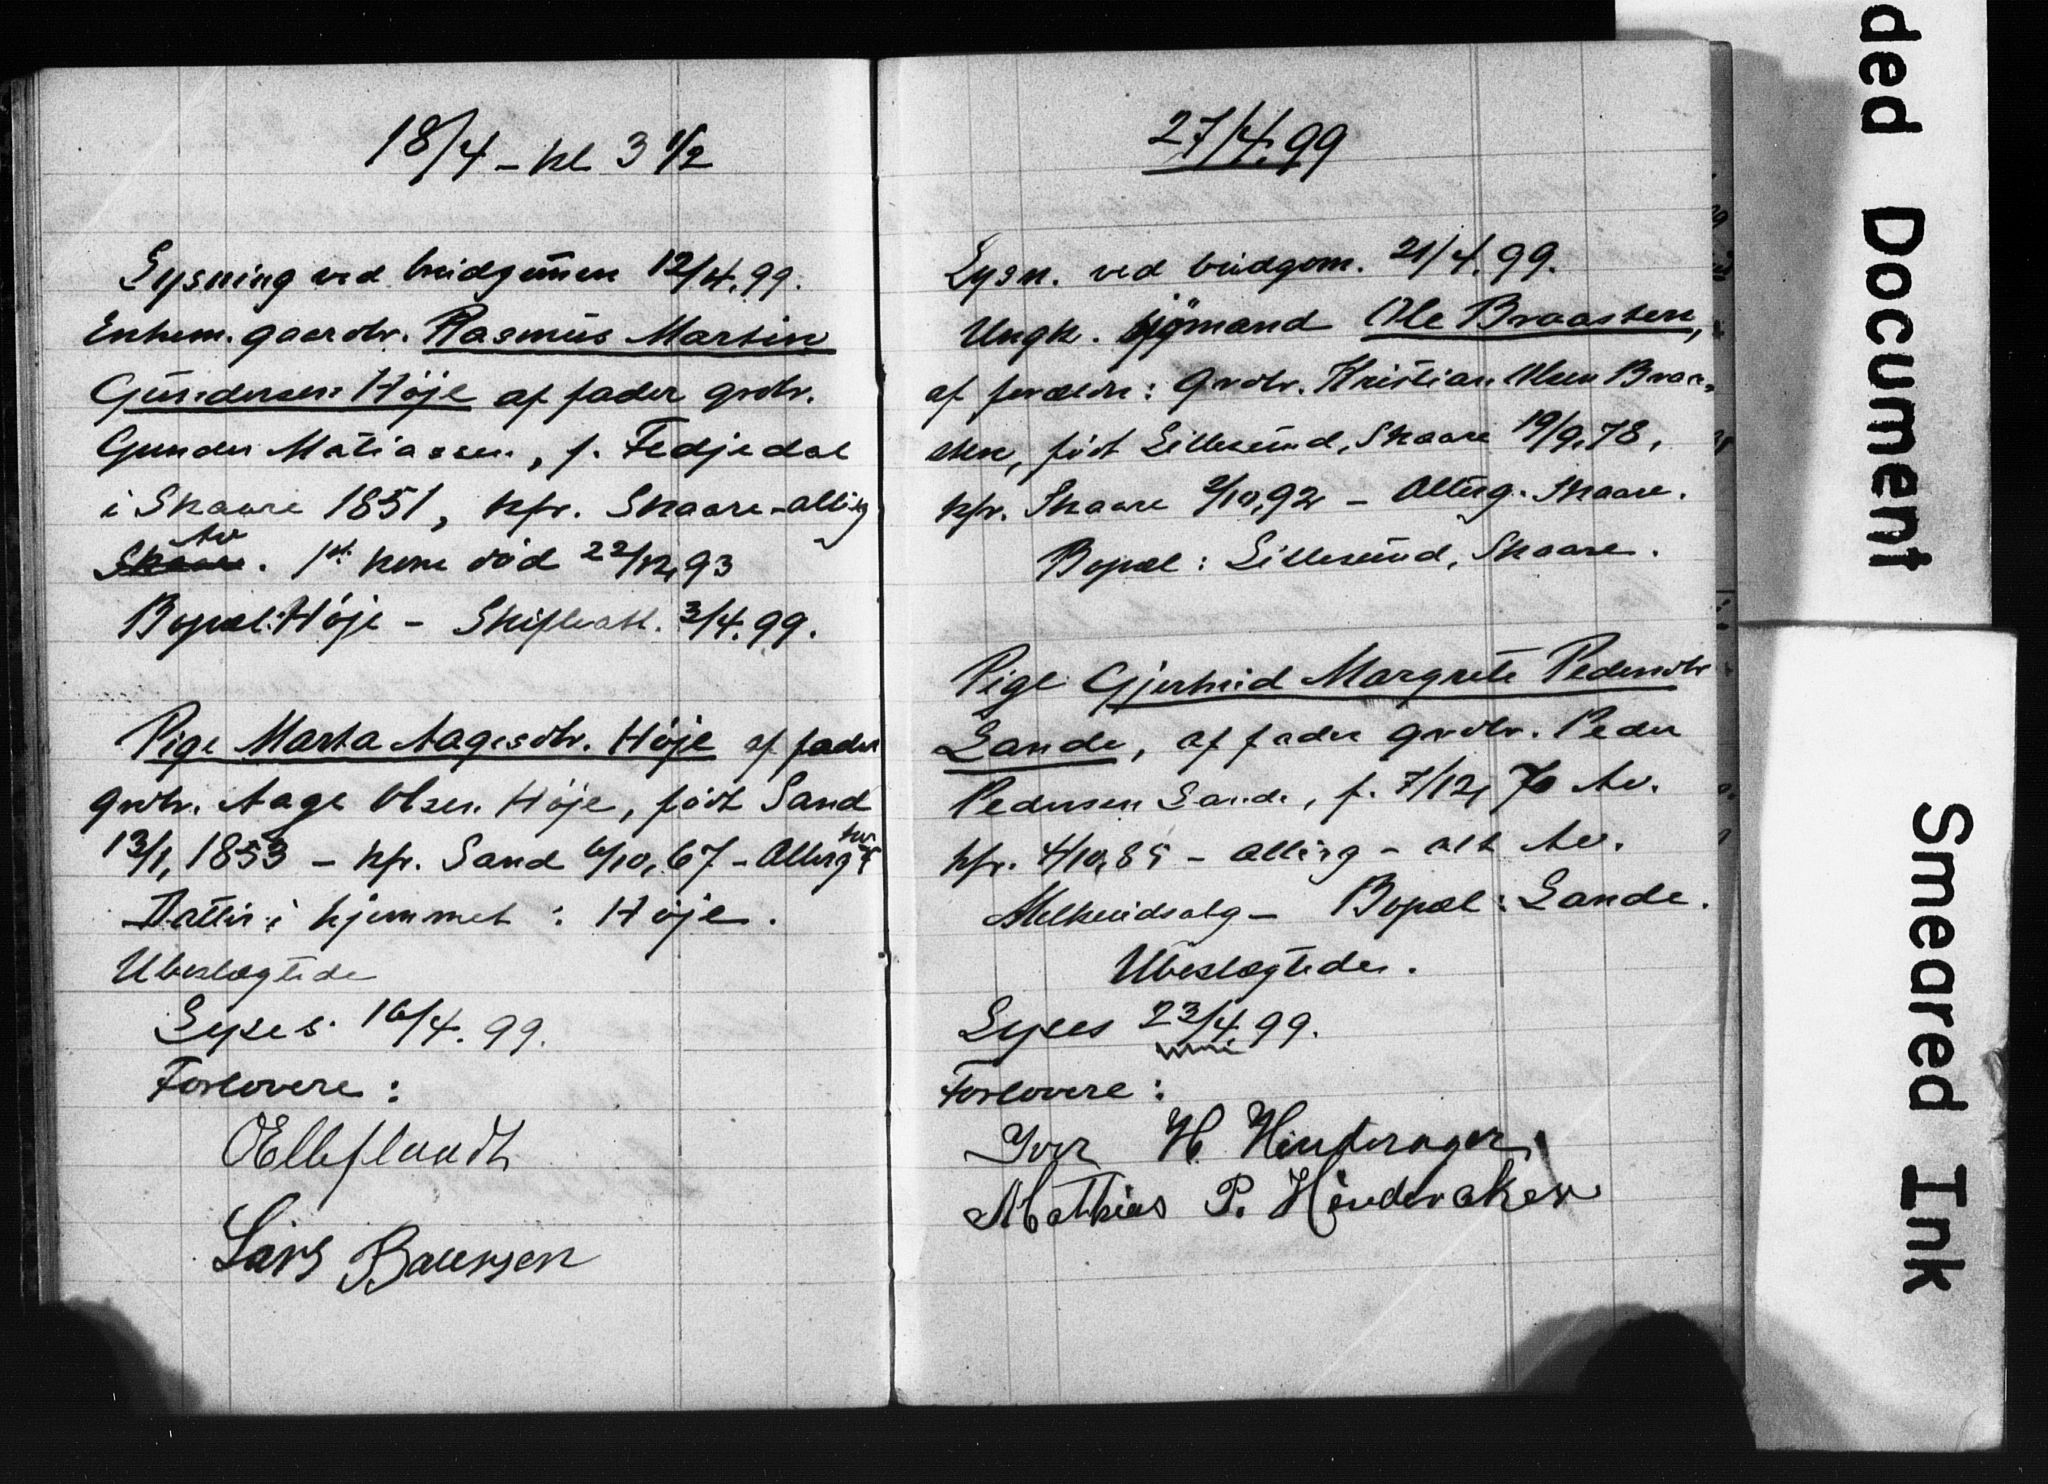 18/4 - kl 3 1/2
Lysning ved brudgommen 12/4. 99.
Enkem. gaardbr. Rasmus Martin
Gundersen Høje af fader grdbr.
Gunder Matiassen, f. Fedjedal
i Skaare 1851, kfr. Skaare - altirg
Av
Skaare. 1st. kone død 22/12, 93
Bopæl: Høje - Skifteatt. 3/4. 99.
Pige Marta Aagesdtr. Høje af fader
grdbr. Aage Olsen Høje, født Sand
13/1, 1853 - kfr. Sand 6/10, 67 - Altirg
Datter i hjemmet : Høje.
Ubeslægtede
Lyses 16/4. 99.
Forlovere :
Lars Baunsen
27/4. 99
Lysn. ved brudgom. 21/4. 99.
Ungk. sjömand Ole Braasten,
af forældre: Grdbr. Kristian Olsen Braa-
sten, født Lillesund, Skaare 19/9, 78,
kfr. Skaare 2/10, 92 - Altirg. Skaare.
Bopæl : Lillesund, Skaare.
Pige Gjertrud Margrete Pedersdtr
Lande, af fader grdbr. Peder
Pedersen Lande, f. 7/12, 70 Av.
kfr. 4/10, 85 - altirg - alt Av.
Melkeudsalg - Bopæl : Lande.
Ubeslægtede.
Lyses 23/4. 99.
Forlovere :
Iver H. Hinderager
Mathias P. Hinderaker
ded Document
Smeared Ink